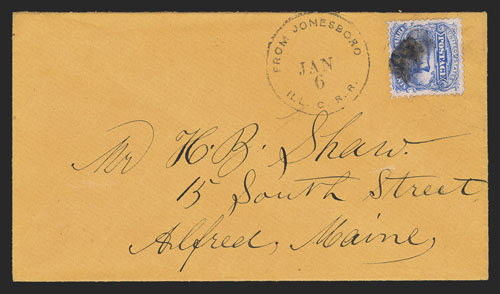 FROM JONESBORO
JAN
6
ILL. C. R. R.
POSTAGE
Mr H. B. Shaw.
15 South Street
Alfred, Maine,